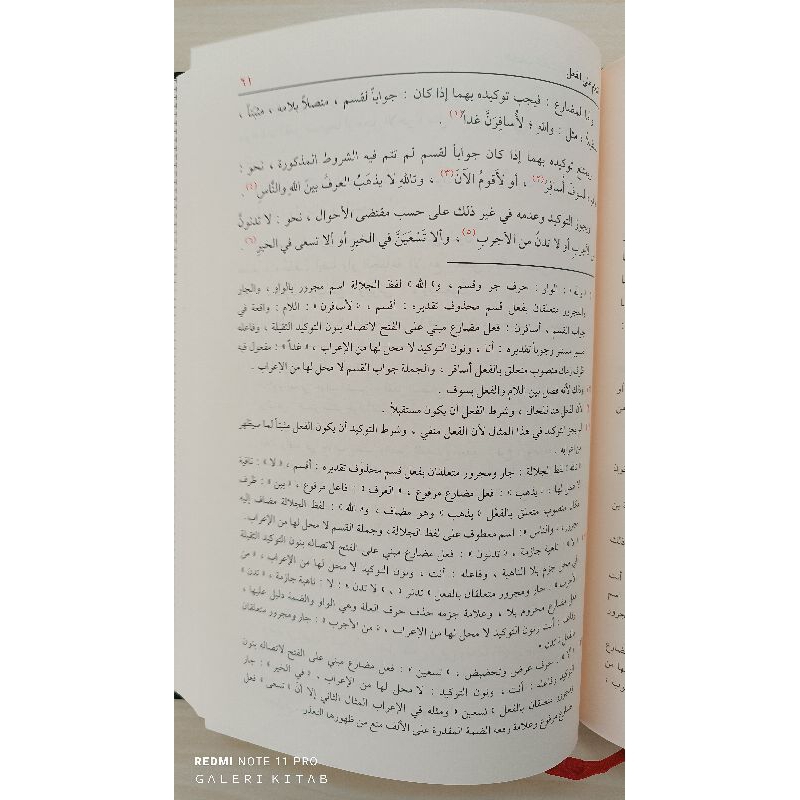 ٢١
وأما المضارع : فيجب توكيده بهما إذا كان : جواباً لقسم ، متصلاً بلامه ، مثبتاً ،
، مثل : واللهِ ؛ لأُسافِرَنَّ غداً(١) .
ويمتنع توكيده بهما إذا كان جواباً لقسم لم تتم فيه الشروط المذكورة ، نحو :
لسوفَ أُسافِرُ(٢) ، أو لأقومُ الآنَ(٣) ، وتاللهِ لا يذهَبُ العرفُ بينَ اللهِ والنَّاسِ(٤) .
ويجوز التوكيد وعدمه في غير ذلك على حسب مقتضى الأحوال ، نحو : لا تدنونَّ
من الأجربِ أو لا تدنُ من الأجربِ(٥) ، وألا تَسْعَيَنَّ في الخيرِ أو ألا تسعى في الخيرِ(٦) .
الواو : حرف جر وقسم ، و« الله » لفظ الجلالة اسم مجرور بالواو ، والجار
والمجرور متعلقان بفعل قسم محذوف تقديره : أقسم ، « لأسافرن » : اللام : واقعة في
جواب القسم ، أسافرن : فعل مضارع مبني على الفتح لاتصاله بنون التوكيد الثقيلة ، وفاعله
ضمير مستتر وجوباً تقديره : أنا ، ونون التوكيد لا محل لها من الإعراب ، « غداً » : مفعول فيه
ظرف زمان منصوب متعلق بالفعل أسافر ، والجملة جواب القسم لا محل لها من الإعراب .
وذلك لأنه فصل بين اللام والفعل بسوف .
لأن الفعل هنا للحال ، وشرط الفعل أن يكون مستقبلاً .
لم يجز التوكيد في هذا المثال لأن الفعل منفي ، وشرط التوكيد أن يكون الفعل مثبتاً لما سيظهر
من إعرابه .
لفظ الجلالة : جار ومجرور متعلقان بفعل قسم محذوف تقديره : أقسم ، « لا » : نافية
لا محل لها ، « يذهب » : فعل مضارع مرفوع ، « العرف » : فاعل مرفوع ، « بين » : ظرف
مكان منصوب متعلق بالفعل « يذهب » وهو مضاف ، و« الله » : لفظ الجلالة مضاف إليه
مجرور ، « والناس » : اسم معطوف على لفظ الجلالة، وجملة القسم لا محل لها من الإعراب .
« لا » : ناهية جازمة ، « تدنون » : فعل مضارع مبني على الفتح لاتصاله بنون التوكيد الثقيلة
في محل جزم بلا الناهية ، وفاعله : أنت ، ونون التوكيد لا محل لها من الإعراب ، « من
الأجرب » : جار ومجرور متعلقان بالفعل « تدنو » ، « لا تدن » : لا : ناهية جازمة ، « تدن »
فعل مضارع مجزوم بلا ، وعلامة جزمه حذف حرف العلة وهي الواو والضمة دليل عليها ،
وفاعله : أنت ونون التوكيد لا محل لها من الإعراب ، « من الأجرب » : جار ومجرور متعلقان
بالفعل « تدن » .
« ألا » : حرف عرض وتحضيض ، « تسعين » : فعل مضارع مبني على الفتح لاتصاله بنون
التوكيد وفاعله : أنت ، ونون التوكيد : لا محل لها من الإعراب ، « في الخير » : جار
ومجرور متعلقان بالفعل « تسعين » ومثله في الإعراب المثال الثاني إلا أنّ « تسعى » فعل
مضارع مرفوع وعلامة رفعه الضمة المقدرة على الألف منع من ظهورها التعذر .
REDMI NOTE 11 PRO
GALERI KITAB